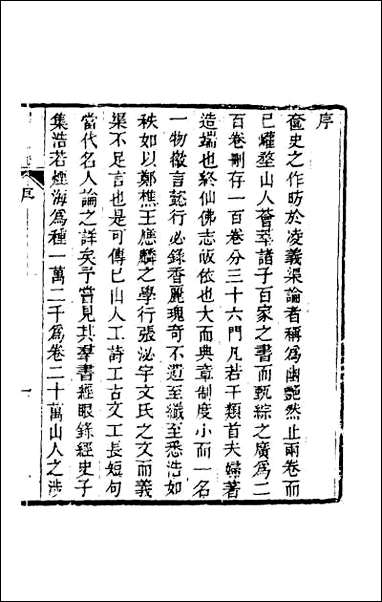 序
奩史之作昉於凌義渠論者稱為幽艷然止兩卷而
已罐埜山人薈萃諸子百家之書而甄綜之廣為二
百卷刪存一百卷分三十六門凡若干類首夫婦著
造端也終仙佛志皈依也大而典章制度小而一名
一物徽言懿行必錄香麗瑰奇不遺至纖至悉浩如
秩如以鄭樵王應麟之學行張泌宇文氏之文而義
果不足言也是可傳已山人工詩工古文工長短句
當代名人論之詳矣予嘗見其羣書經眼錄經史子
集浩若煙海為種一萬二千為卷二十萬山人之涉
序
一